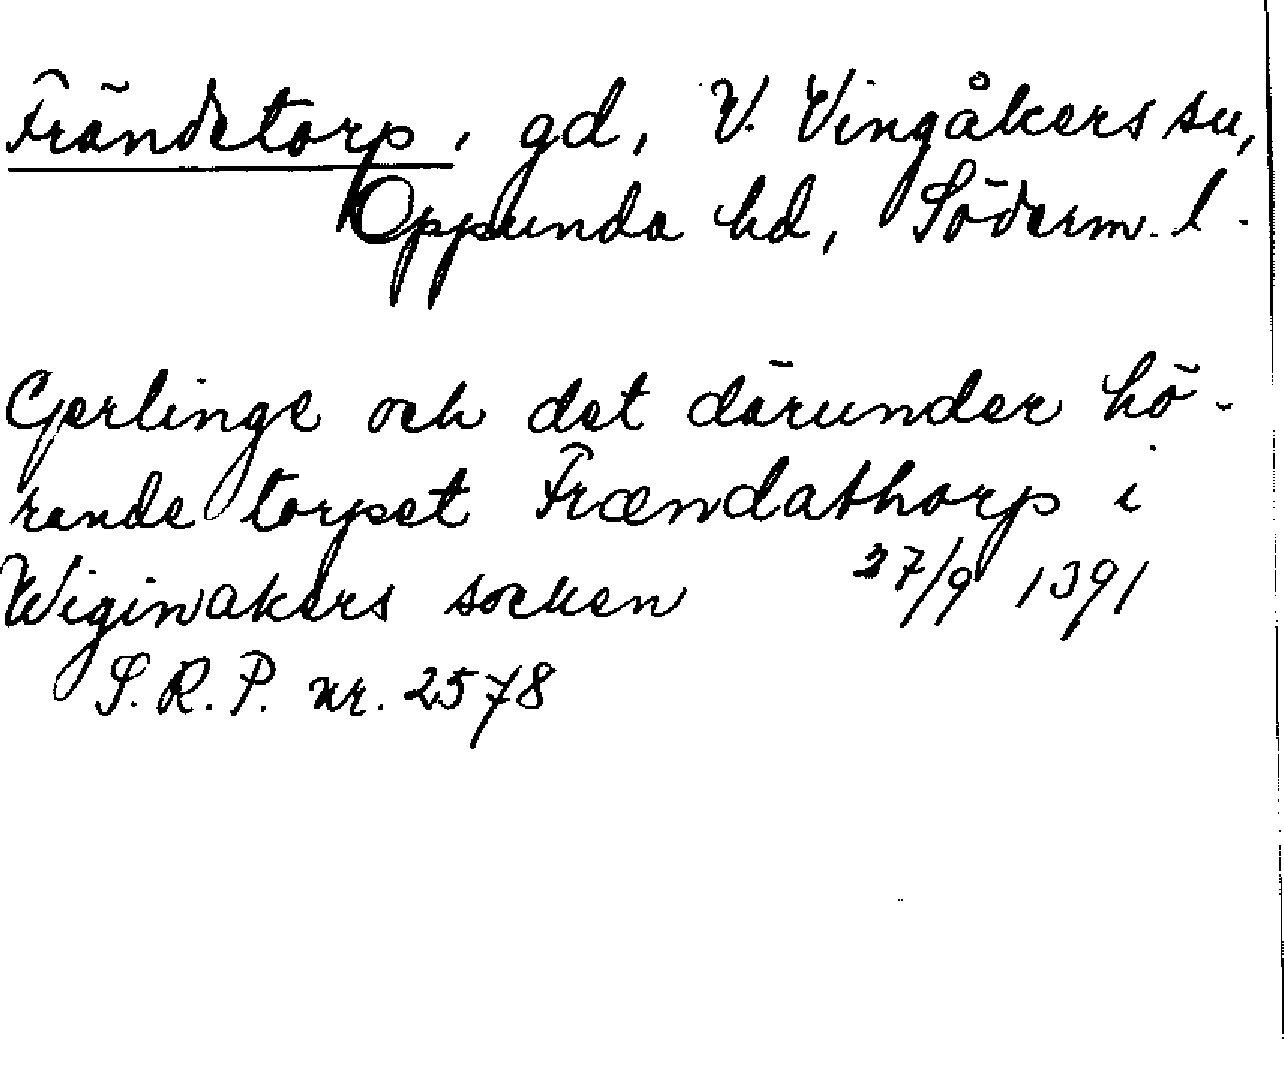 Frändetorp, gd, V. Vingåkers sn,
Oppunda hd, Söderm. l.
Gerlinge och det därunder hö-
rande torpet Frændathorp i
Wiginakers socken 27/9 1391
S.R.P. nr. 2578